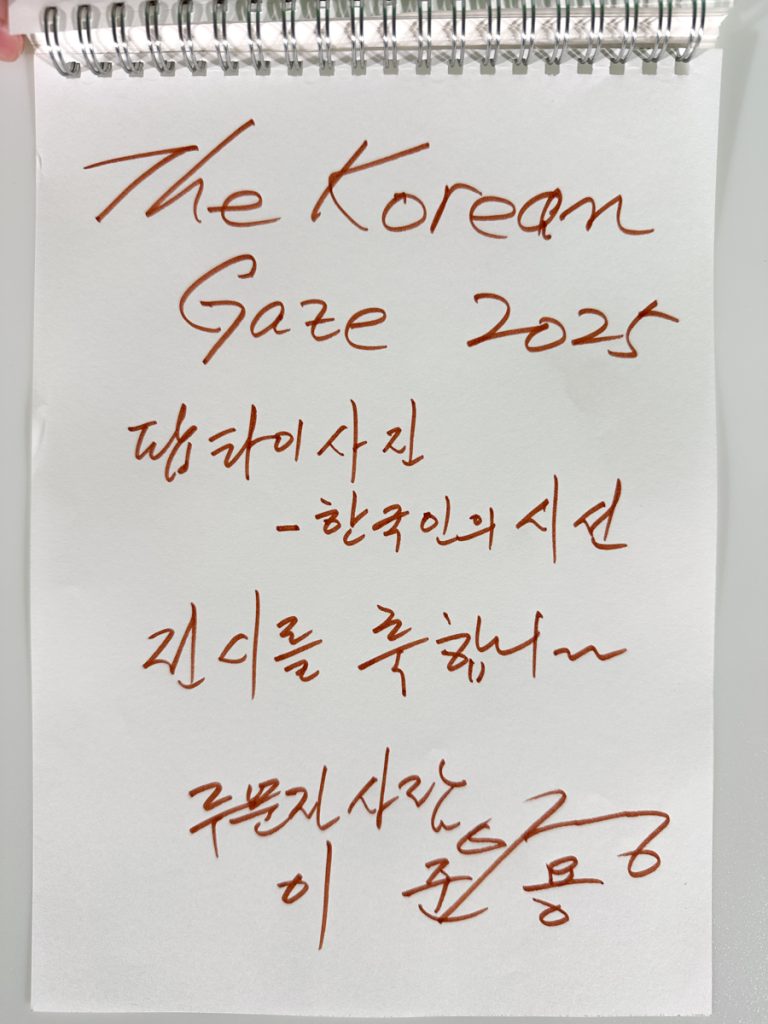 The Korean
Gaze 2025
탑타이사진
-한국인의 시선
전시를 축합니
이 준 용